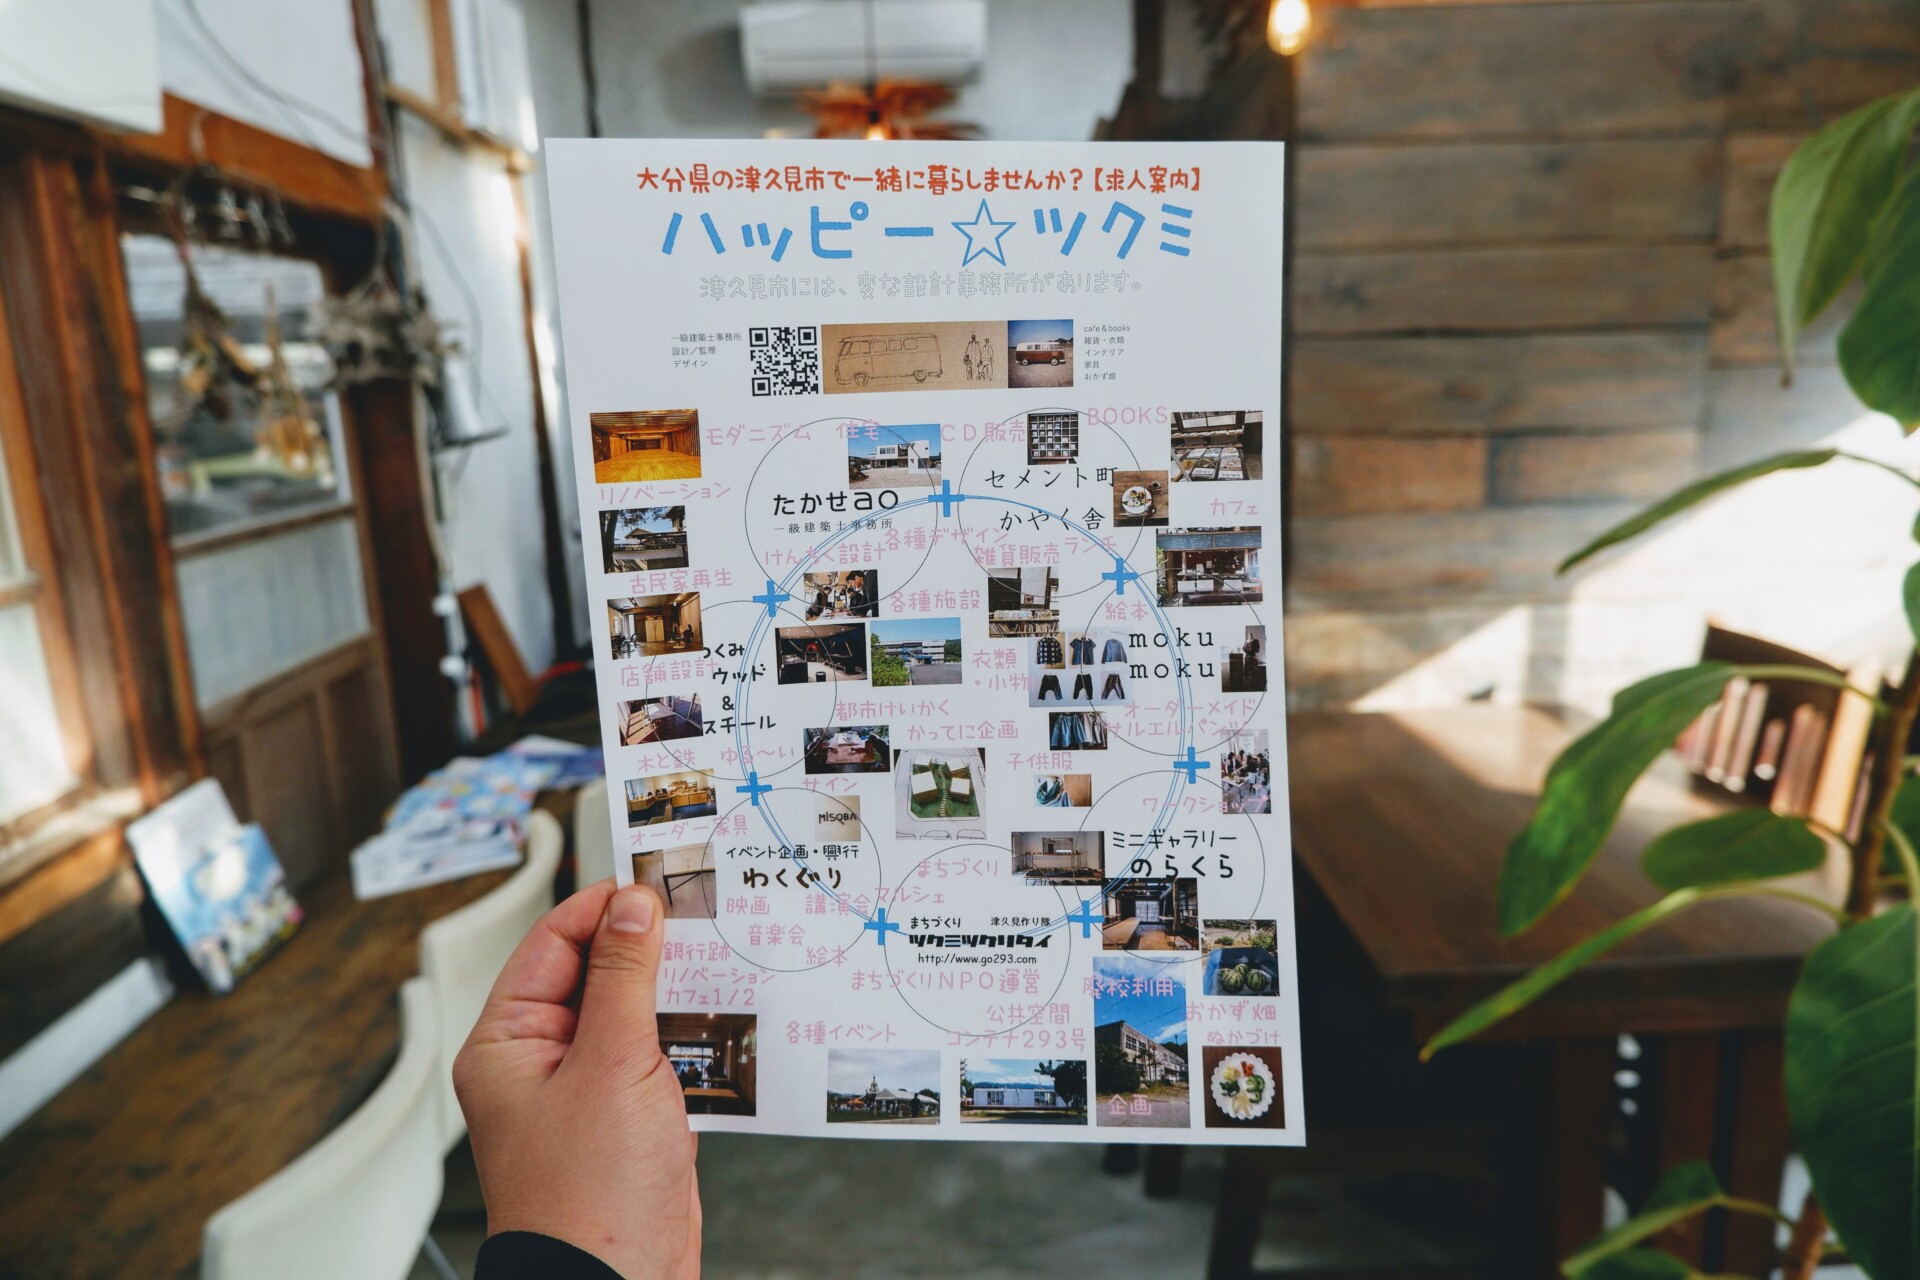 大分県の津久見市で一緒に暮らしませんか？【求人案内】
ハッピー☆ツクミ
津久見市には、変な設計事務所があります。
一級建築士事務所
設計／監理
デザイン
cafe＆books
雑貨・衣類
インテリア
家具
おかず畑
モダニズム
住宅
CD販売
BOOKS
リノベーション
たかせao
一級建築士事務所
セメント町
かやく舎
カフェ
けんちく設計
各種デザイン
雑貨販売
ランチ
古民家再生
各種施設
絵本
店舗設計
つくみ
ウッド
&
スチール
衣類
・小物
moku
moku
都市けいかく
かってに企画
オーダーメイド
サルエルパンツ
木と鉄
ゆる〜い
サイン
子供服
ワークショップ
オーダー家具
MISOBA
イベント企画・興行
わくぐり
まちづくり
ミニギャラリー
のらくら
映画
講演会
マルシェ
音楽会
絵本
まちづくり
津久見作り隊
ツクミツクリタイ
http://www.go293.com
銀行跡
リノベーション
カフェ1/2
まちづくりNPO運営
廃校利用
各種イベント
公共空間
コンテナ293号
おかず畑
ぬかづけ
企画